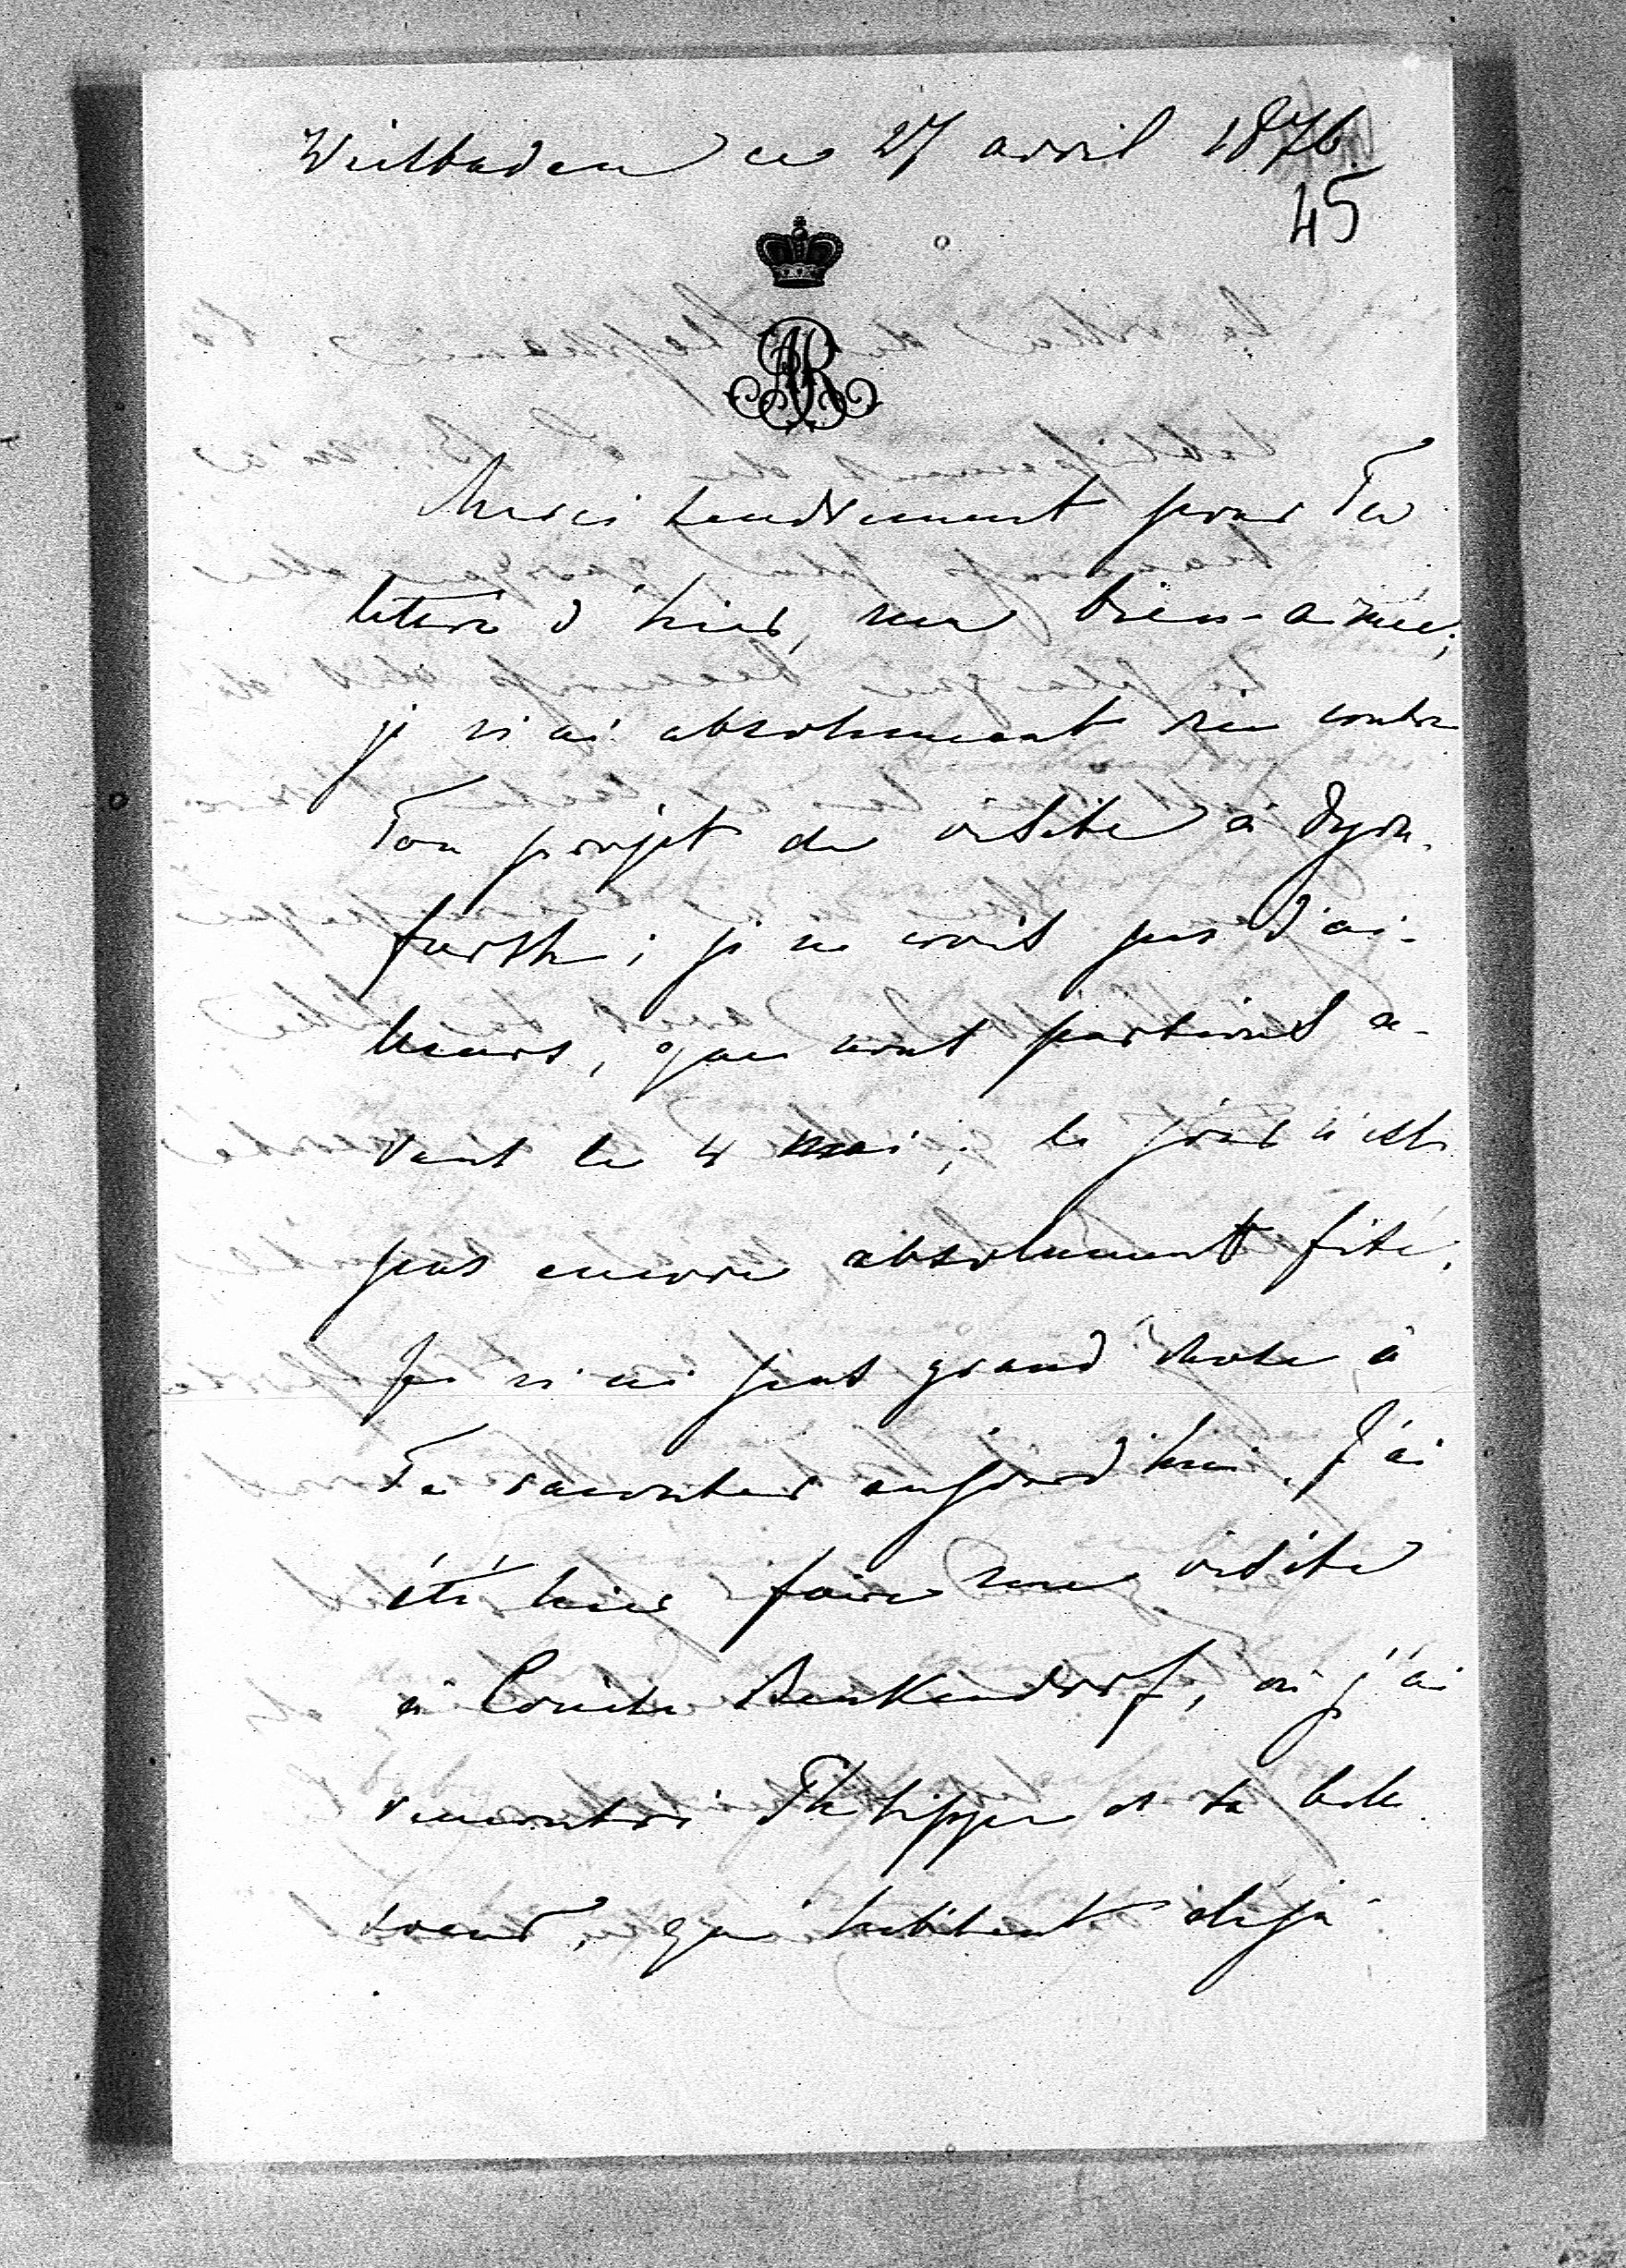 Wiesbaden ce 27 avril 1876.
45
Merci tendrement pour Ta
lettre d'hier, ma bien-aimée;
je n'ai absolument rien contre
Ton projet de visite à Dyrn-
furth; je ne crois pas d'ai-
lleurs, que nous partions a-
vant le 4 mai; le jour n'est
pas encore absolument fixé.
Je n'ai pas grand chose à
Te raconter aujourd'hui. J'ai
été hier faire une visite
à Benkendorf, où j'ai
rencontré Philippe et sa belle
soeur, qui habitent déjà